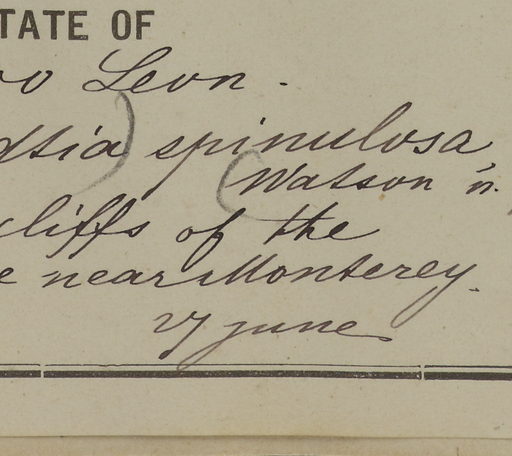 TATE OF
vo Leon.
dtia) spinulosa,
(Watson n.
cliffs of the
e near Monterey.
27 june